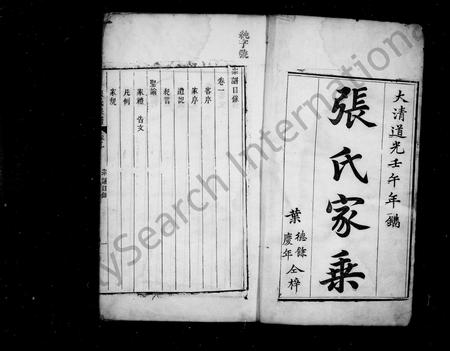 大清道光壬午年鐫
張氏家乘
葉
德餘
慶年
仝梓
純字號
宗譜目錄
卷一
客序
家序
遺說
起言
聖諭
家禮 告文
凡例
家規
宗譜目錄
FamilySearch International